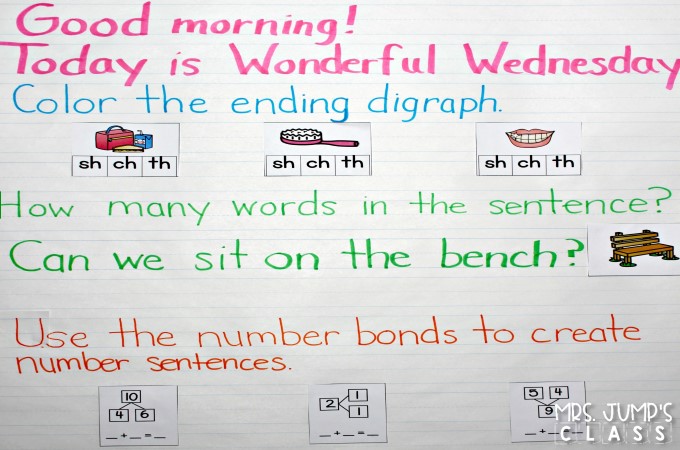 Good morning!
Today is Wonderful Wednesday
Color the ending digraph.
sh ch th
sh ch th
sh ch th
How many words in the sentence?
Can we sit on the bench?
Use the number bonds to create
number sentences.
10
4 6
_ + _ = _
2 1
1
_ + _ = _
5 4
9
_ + _ = _
MRS. JUMP'S
CLASS